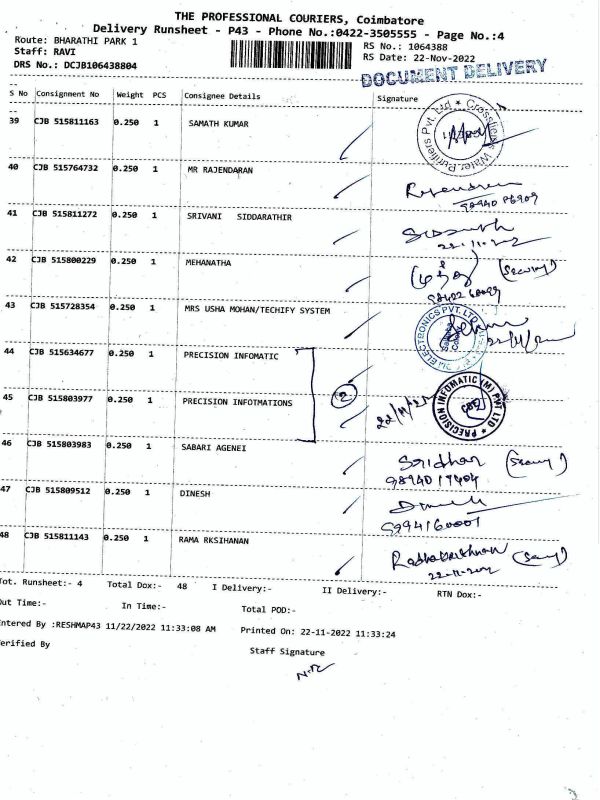 THE PROFESSIONAL COURIERS, Coimbatore
Delivery Runsheet - P43 - Phone No.:0422-3505555 - Page No.:4
Route: BHARATHI PARK 1
RS No.: 1064388
Staff: RAVI
RS Date: 22-Nov-2022
DRS No.: DCJB106438804
DOCUMENT DELIVERY
S No Consignment No Weight PCS Consignee Details Signature
39 CJB 515811163 0.250 1 SAMATH KUMAR
Crossfields Water Purifiers Pvt. Ltd
40 CJB 515764732 0.250 1 MR RAJENDARAN
Rajendran
41 CJB 515811272 0.250 1 SRIVANI SIDDARATHIR
22.11.2022
42 CJB 515800229 0.250 1 MEHANATHA
43 CJB 515728354 0.250 1 MRS USHA MOHAN/TECHIFY SYSTEM
ELECTRONICS PVT. LTD
44 CJB 515634677 0.250 1 PRECISION INFOMATIC
45 CJB 515803977 0.250 1 PRECISION INFOTMATIONS
2
PRECISION INFOMATIC (M) PVT LTD
46 CJB 515803983 0.250 1 SABARI AGENEI
Sridhar
9894019404
47 CJB 515809512 0.250 1 DINESH
9994160001
48 CJB 515811143 0.250 1 RAMA RKSIHANAN
Radhakrishnan
22-11-2022
Tot. Runsheet:- 4 Total Dox:- 48 I Delivery:- II Delivery:- RTN Dox:-
Out Time:- In Time:- Total POD:-
Entered By :RESHMAP43 11/22/2022 11:33:08 AM Printed On: 22-11-2022 11:33:24
Verified By Staff Signature